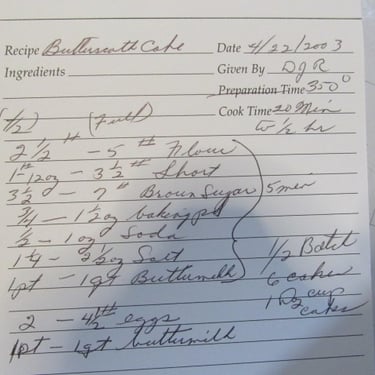 Recipe Butterscoth Cake Date 4/22/2003
Ingredients Given By DJR
Preparation Time 350°
Cook Time 20 Min
(1/2) (Full) to 1/2 hr
2 1/2 - 5 # Flour
1# 12oz - 3 1/2 # Short
3 1/2 - 7 # Brown Sugar 5 min
3/4 - 1 1/2 oz baking pd
1/2 - 1 oz Soda
1/4 - 1/2 oz Salt
1pt - 1qt Buttermilk
1/2 Batch
6 cakes
1 Dz cup cakes
2 - 4 1/2 # eggs
1pt - 1qt buttermilk